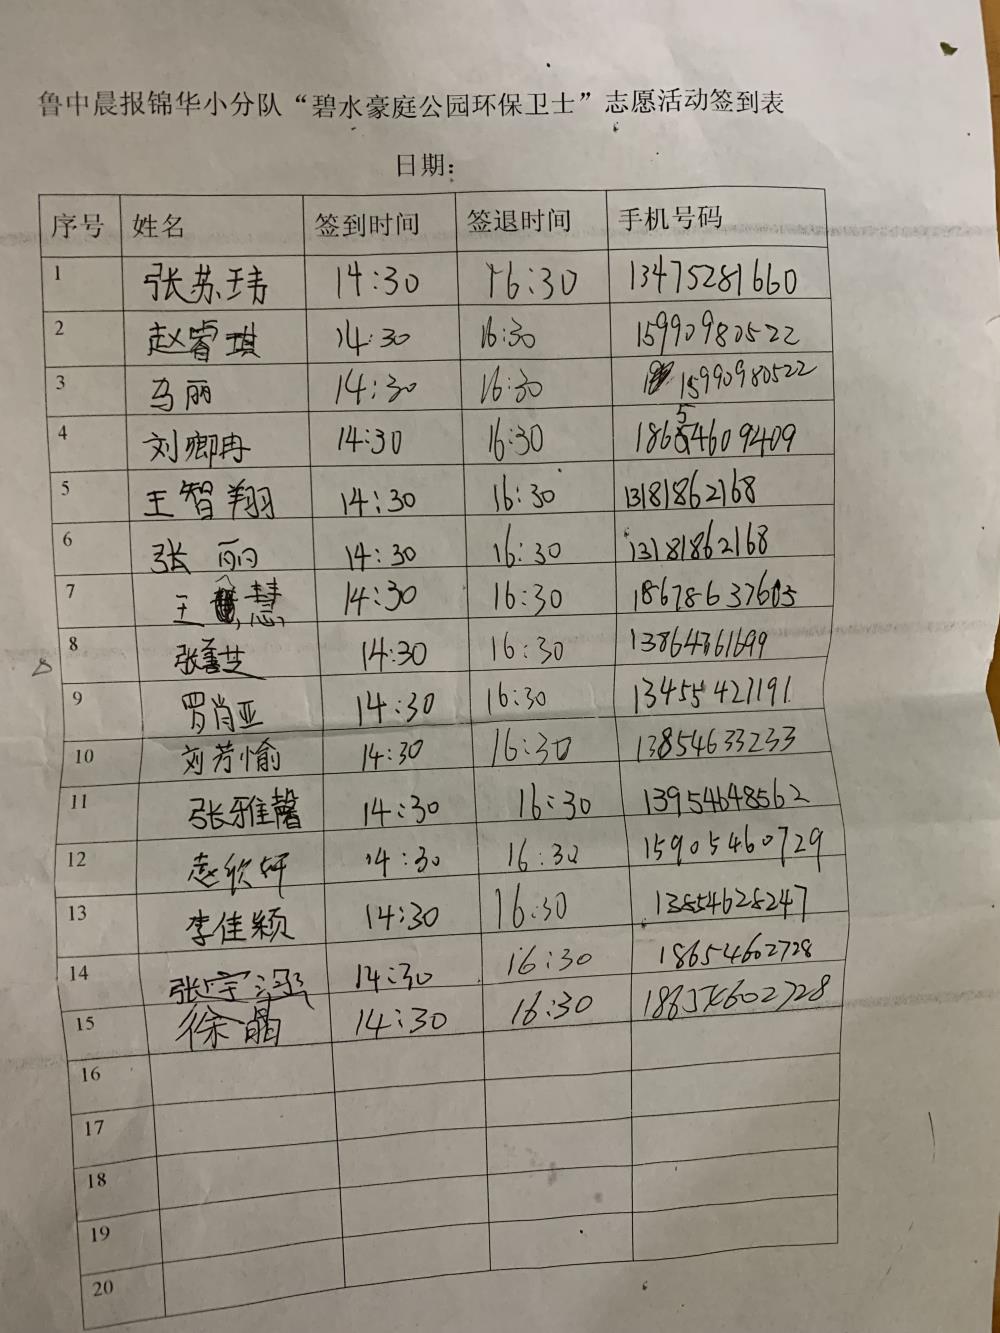 鲁中晨报锦华小分队“碧水豪庭公园环保卫士”志愿活动签到表
日期：
序号 姓名 签到时间 签退时间 手机号码
1 张苏玮 14:30 16:30 13475281660
2 赵睿琪 14:30 16:30 15990980522
3 马丽 14:30 16:30 15990980522
4 刘卿冉 14:30 16:30 18654609409
5 王智翔 14:30 16:30 13181862168
6 张丽 14:30 16:30 13181862168
7 王慧 14:30 16:30
8 14:30 16:30
9 罗肖亚 14:30 16:30 13455427191
10 刘芳愉 14:30 16:30 13854633233
11 张雅馨 14:30 16:30 13954648562
12 赵欣妍 14:30 16:30 15905460729
13 李佳颖 14:30 16:30 13854628247
14 张宇涵 14:30 16:30 18654602728
15 徐晶 14:30 16:30 18654602728
16
17
18
19
20